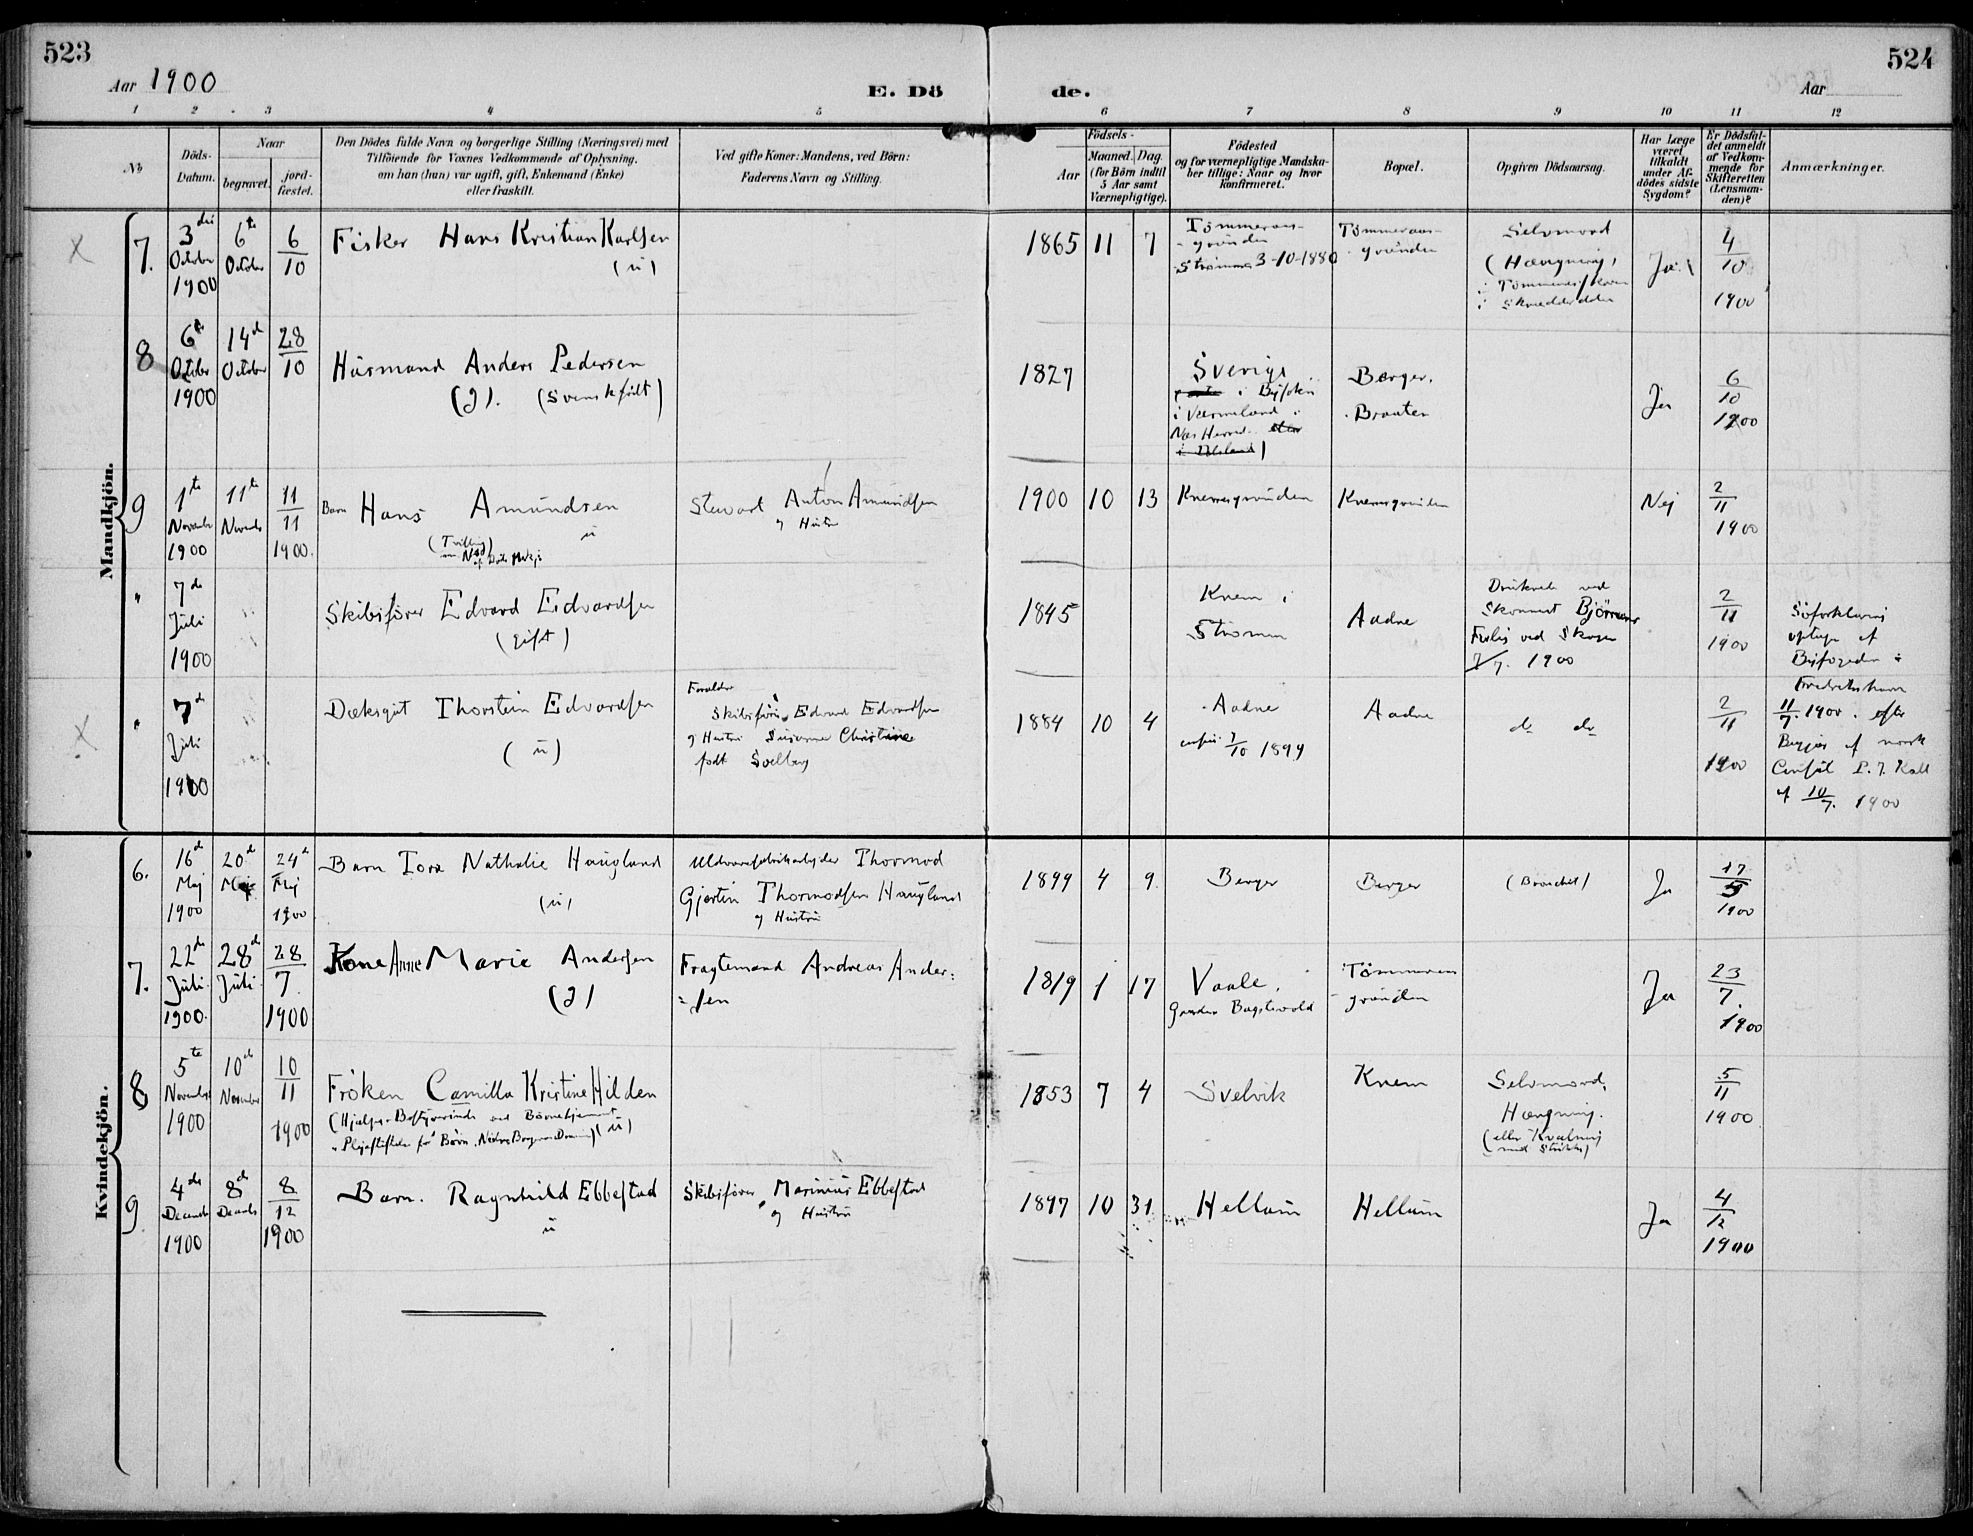 523
524
Aar 1900
E. Dö
de.
Aar
1 2 3 4 5 6 7 8 9 10 11 12
No
Döds-
Datum.
Naar
begravet.
jord-
fæstet.
Den Dödes fulde Navn og borgerlige Stilling (Næringsvei) med
Tilföiende for Voxnes Vedkommende af Oplysning,
om han (hun) var ugift, gift, Enkemand (Enke)
eller fraskilt.
Ved gifte Koner: Mandens, ved Börn:
Faderens Navn og Stilling.
Födsels-
Aar
Maaned. Dag.
(for Börn indtil
5 Aar samt
Værnepligtige).
Födested
og for værnepligtige Mandska-
ber tillige: Naar og hvor
konfirmeret.
Bopæl.
Opgiven Dödsaarsag.
Har Læge
været
tilkaldt
under Af-
dödes sidste
Sygdom?
Er Dödsfal-
det anmeldt
af Vedkom-
mende for
Skifteretten
(Lensman-
den)?
Anmærkninger.
Mandkjön.
7.
3die
October
1900
6te
October
6/10
Fisker Hans Kristian Karlsen
(ú)
1865 11 7
Tömmeraas-
grúnden
Strömmen 3-10-1880
Tömmeraas-
grúnden
Selvmord
(Hængning,
i
i
Ja
4/10
1900
8
6te
October
1900
14de
October
28/10
Húsmand Anders Pedersen
(g). (Svenskfödt)
1827
Sverige
i
i Værmeland i
Næs Herred
i Dalsland)
Berger.
Braaten
Ja
6/10
1900
9
1te
November
1900
11te
November
11/11
1900.
Barn Hans Amúndsen
ú
(Tvilling)
Stewart Anton Amúndsen
og Hústrú
1900 10 13
Knemsgrúnden
Knemsgrúnden
Nej
2/11
1900
"
7de
Júli
1900
Skibsförer Edvard Edvardsen
(gift)
1845
Knem i
Strömm
Aadne
Drúknede ved
Skonnert Björnens
Forlis ved Skagen
7/7. 1900
2/11
1900
Söforklaring
optagen af
Byfogeden i
"
7de
Júli
1900
Dæksgút Thorstein Edvardsen
(ú)
Forældre
Skibsförer Edvard Edvardsen
og Hústrú Súsanne Christine
födt Solberg
1884 10 4
Aadne
1/10 1899
Aadne
do do
2/11
1900
Fredrikshavn
11/7. 1900. efter
Begjær af norsk
Consúl P. J. Kall
af 10/7. 1900
Kvindekjön.
6.
16de
Maj
1900
20de
Maj
24de
Maj
1900
Barn Tora Nathalie Haúgland
(ú)
Uldvarefabrikarbejder Thormod
Gjertin Thormodsen Haúgland
og Hústrú
1899 4 9
Berger
Berger
(Bronchit)
Ja
17/5
1900
7.
22de
Júli
1900.
28de
Júli
28/7
1900
Kone Anne Marie Andersen
(g)
Fragtemand Andreas Ander-
sen
1819 1 17
Vaale.
Tömmeraas
grúnden
Ja
23/7.
1900
8
5te
November
1900
10de
November
10/11
1900
Fröken Camilla Kristine Hilden
(Hjælpe-Bestyrerinde ved Börnehjemmet
Plejestiftelse for Börn, Nedre Bogen Drammen) (ú)
1853 7 4
Svelvik
Knem
Selvmord,
Hængning.
(eller Kvælning
med Strikke)
5/11
1900
9
4de
December
1900
8de
December
8/12
1900
Barn. Ragnhild Ebbestad
ú
Skibsförer Marinius Ebbestad
og Hústrú
1897 10 31
Hellúm
Hellúm
Ja
4/12
1900